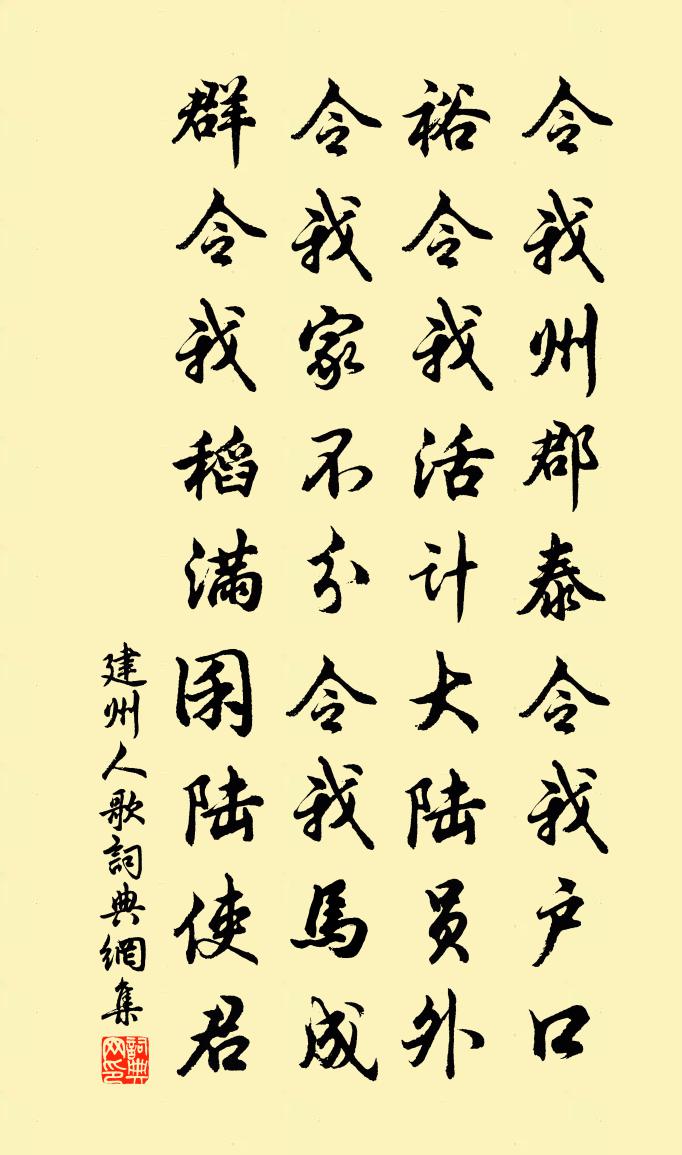 令我州郡泰令我户口
裕令我活计大陆员外
令我家不分令我馬成
群令我稻满囷陆使君
建州人歌詞典網集
詞典网印